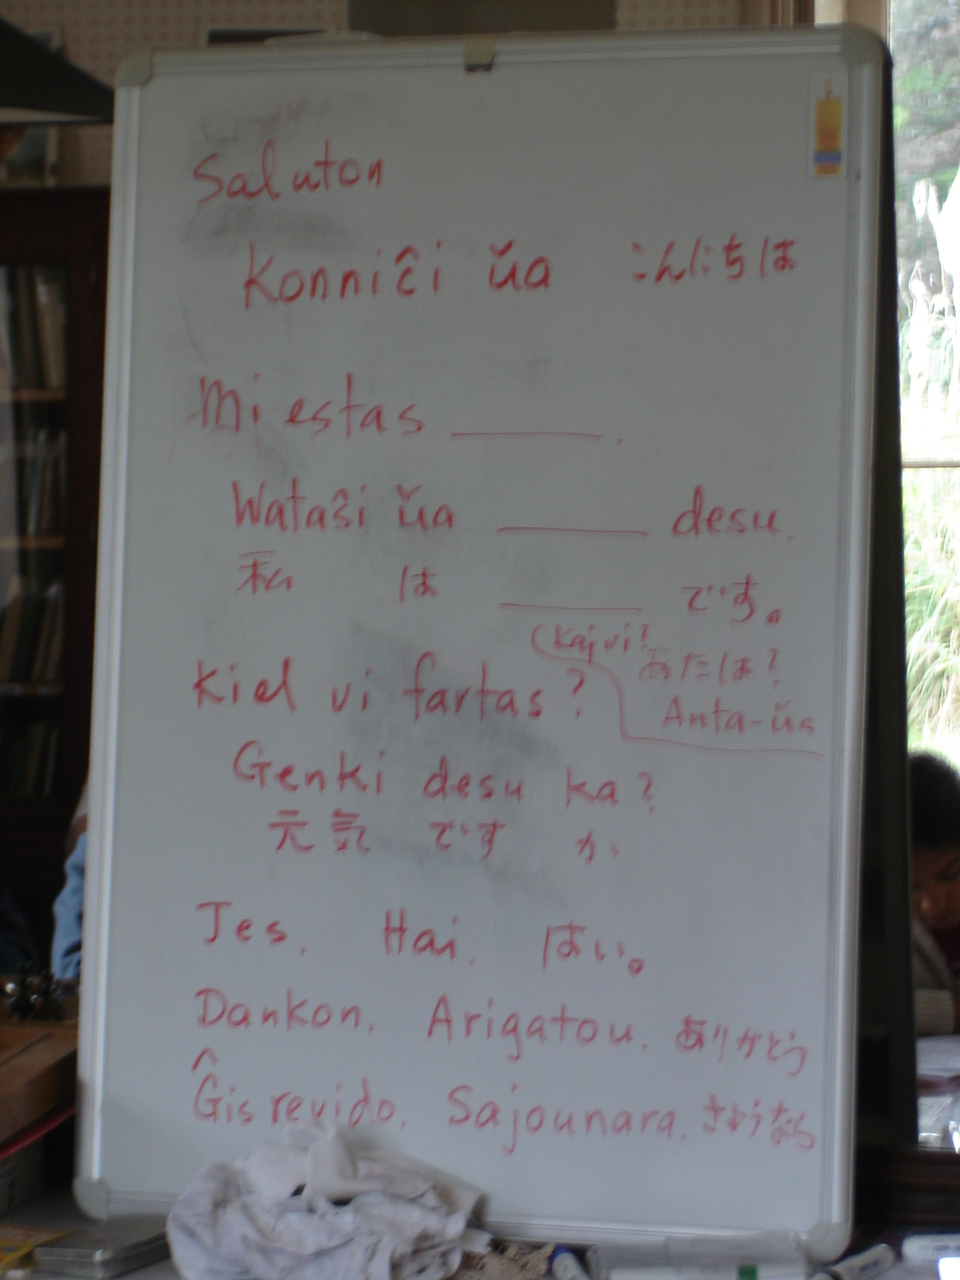 Saluton
Konniĉi ŭa こんにちは
Mi estas ______.
Wataŝi ŭa ______ desu.
私 は ______ です。
(Kaj vi? あたは?
Anta-ŭa
Kiel vi fartas?
Genki desu ka?
元気 です か.
Jes. Hai. はい。
Dankon. Arigatou. ありがとう
Ĝis revido. Sajounara. さようなら